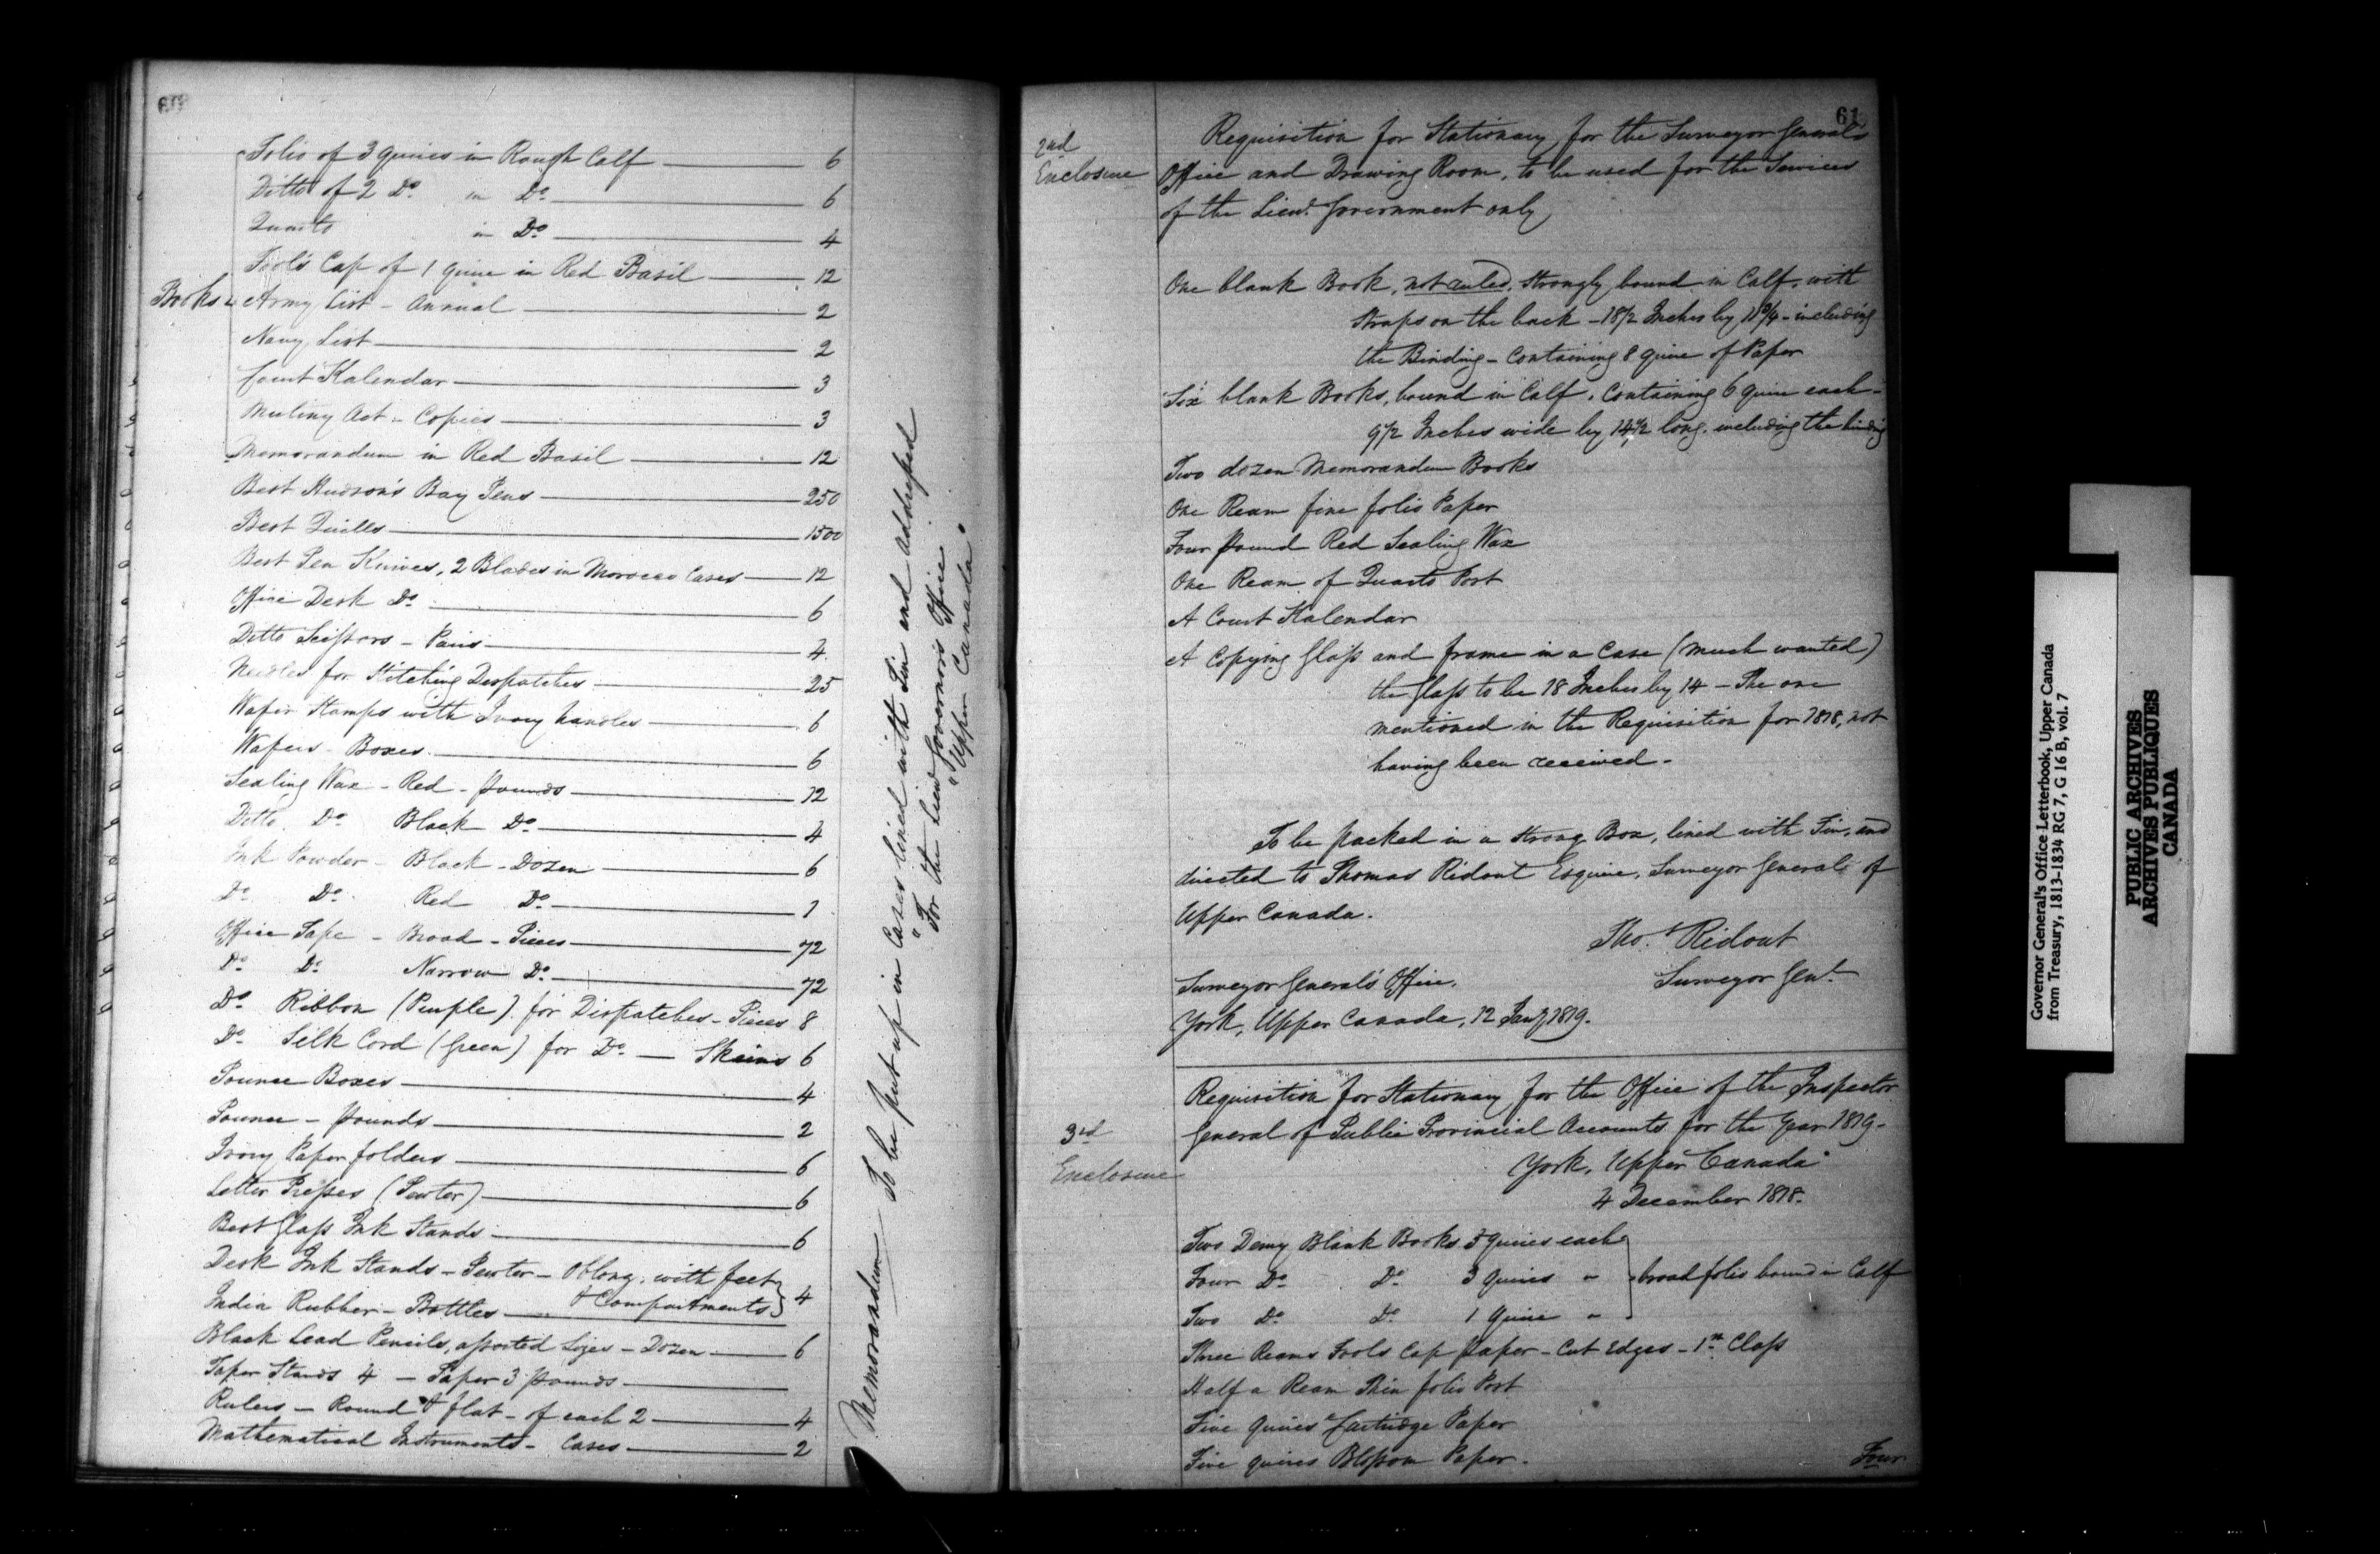 60
Folio of 3 quires in Rough Calf 6
Ditto of 2 Do in Do 6
Quarto in Do 4
Fool's Cap of 1 quire in Red Basil 12
Books Army List - Annual 2
Navy List 2
Court Kalendar 3
Mutiny Act - Copies 3
Memorandum in Red Basil 12
Best Hudson's Bay Pens 250
Best Quills 1500
Best Pen Knives, 2 Blades in Morocco Cases 12
Office Desk Do 6
Ditto Scissors - Pairs 4
Needles for Stitching Despatches 25
Wafer Stamps with Ivory handles 6
Wafers - Boxes 6
Sealing Wax - Red - pounds 12
Ditto Do Black Do 4
Ink Powder - Black - Dozen 6
Do Do Red Do 1
Office Tape - Broad - Pieces 72
Do Do Narrow Do 72
Do Ribbon (Purple) for Dispatches - Pieces 8
Do Silk Cord (Green) for Do - Skeins 6
Pounce Boxes 4
Pounce - pounds 2
Ivory Paper folders 6
Letter Presses (Pewter) 6
Best Glass Ink Stands 6
Desk Ink Stands - Pewter - Oblong, with feet
& Compartments 4
India Rubber - Bottles
Black Lead Pencils, assorted Sizes - Dozen 6
Taper Stands 4 - Taper 3 pounds
Rulers - Round & flat - of each 2 4
Mathematical Instruments - Cases 2
Memorandum - To be put up in Cases lined with Tin and addressed
"For the Lieut Governor's Office
"Upper Canada"
61
2nd
Enclosure
Requisition for Stationary for the Surveyor General's
Office and Drawing Room, to be used for the Services
of the Lieut. Government only
One blank Book, not ruled, strongly bound in Calf, with
straps on the back - 18 1/2 Inches by 11 3/4 - including
the Binding - Containing 8 quire of Paper
Six blank Books, bound in Calf, Containing 6 quire each -
9 1/2 Inches wide by 14 1/2 long, including the binding
Two dozen Memorandum Books
One Ream fine folio Paper
Four pound Red Sealing Wax
One Ream of Quarto Post
A Court Kalendar
A Copying Glass and frame in a Case (much wanted)
the Glass to be 18 Inches by 14 - The one
mentioned in the Requisition for 1818, not
having been received -
To be packed in a strong Box, lined with Tin, and
directed to Thomas Ridout Esquire, Surveyor General of
Upper Canada.
Tho. Ridout
Surveyor Genl.
Surveyor General's Office,
York, Upper Canada, 12 Jany 1819.
3rd
Enclosure
Requisition for Stationary for the Office of the Inspector
General of Public Provincial Accounts for the Year 1819 -
York, Upper Canada
4 December 1818.
Two Demy Blank Books 5 quires each
Four Do Do 3 quires " broad folio bound in Calf
Two Do Do 1 quire "
Three Reams Fools Cap paper - Cut Edges - 1st Class
Half a Ream Thin folio Post
Five quires Cartridge Paper
Five quires Blossom Paper -
Four
Governor General's Office Letterbook, Upper Canada
from Treasury, 1813-1834 RG 7, G 16 B, vol. 7
PUBLIC ARCHIVES
ARCHIVES PUBLIQUES
CANADA